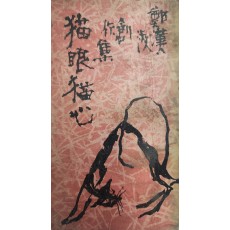 鄭萬成
創作集
猫眼猫心